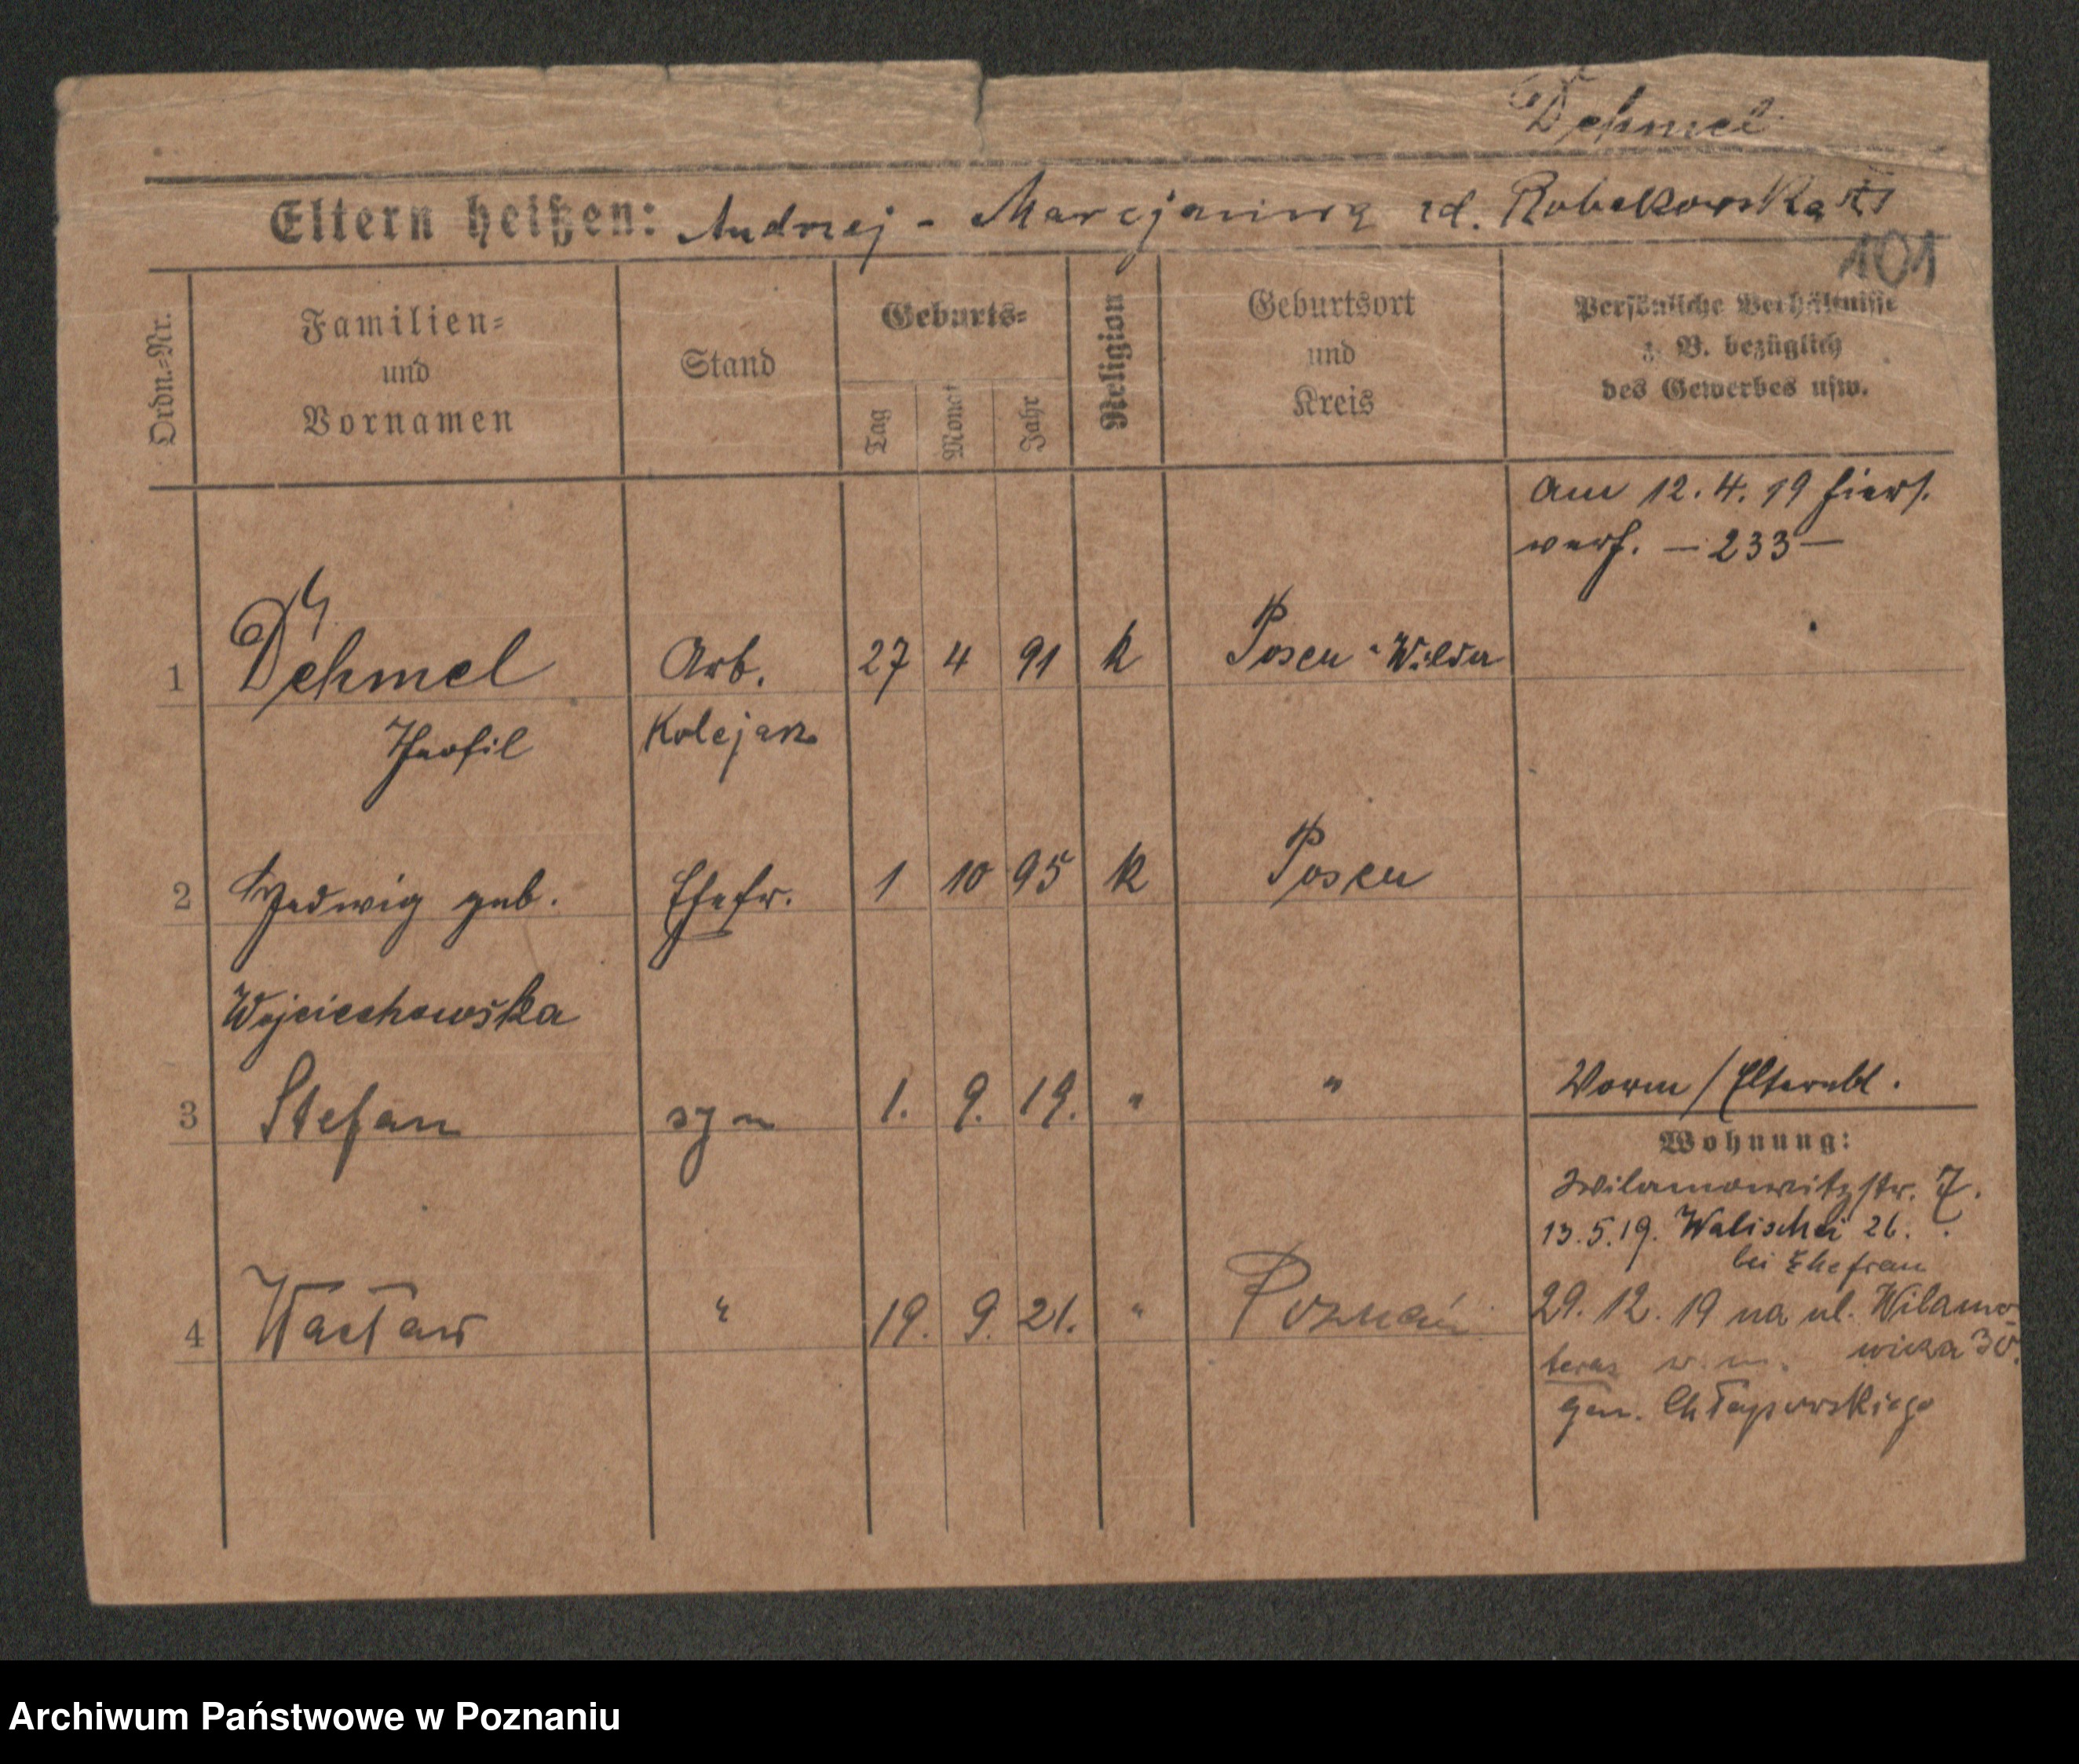 Dehmel
Eltern heißen: Andrzej - Marcjanna zd. Robakowska
101
Ordn.-Nr.
Familien-
und
Vornamen
Stand
Geburts-
Tag
Monat
Jahr
Religion
Geburtsort
und
Kreis
Persönliche Verhältnisse
z. B. bezüglich
des Gewerbes usw.
Am 12. 4. 19 hiers.
verh. — 233 —
1 Dehmel Arb. 27 4 91 k Posen - Wilda
Theofil Kolejarz
2 Hedwig geb. Ehefr. 1 10 95 k Posen
Wojciechowska
3 Stefan syn 1. 9. 19. " "
Worm / Elternbl.
Wohnung:
Wilamowitzstr. 7.
13.5.19. Wallischei 26.
bei Ehefrau
4 Wacław " 19. 9. 21. " Poznań
29. 12. 19 na ul. Wilamo-
wicza 30.
teraz w. m.
gen. Chłapowskiego
Archiwum Państwowe w Poznaniu